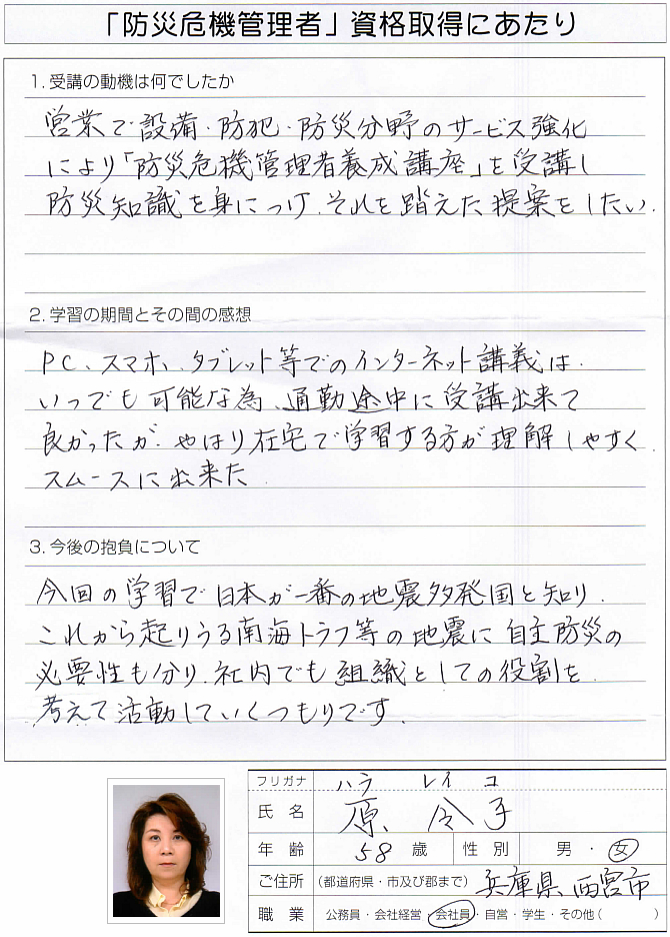 「防災危機管理者」資格取得にあたり
1. 受講の動機は何でしたか
営業で設備・防犯・防災分野のサービス強化
により「防災危機管理者養成講座」を受講し
防災知識を身につけ、それを踏えた提案をしたい.
2. 学習の期間とその間の感想
PC、スマホ、タブレット等でのインターネット講義は.
いつでも可能な為、通勤途中に受講出来て
良かったが、やはり在宅で学習する方が理解しやすく
スムースに出来た.
3. 今後の抱負について
今回の学習で日本が一番の地震多発国と知り.
これから起りうる南海トラフ等の地震に自主防災の
必要性も分り、社内でも組織としての役割を
考えて活動していくつもりです.
フリガナ ハラ レイコ
氏名 原 令子
年齢 58 歳 性別 男・女
ご住所 (都道府県・市及び郡まで) 兵庫県西宮市
職業 公務員・会社経営・会社員・自営・学生・その他( )